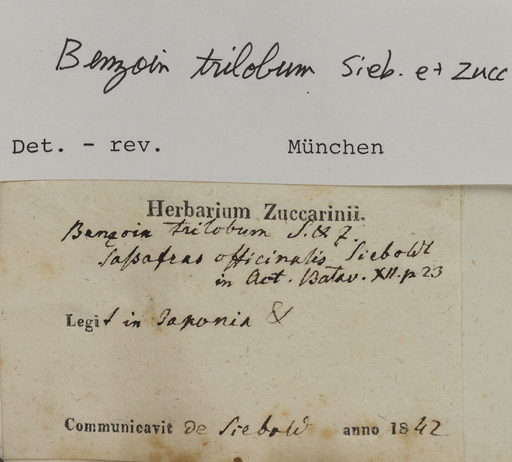 Benzoin trilobum Sieb. et Zucc
Det. - rev. München
Herbarium Zuccarinii.
Benzoin trilobum S. & Z.
Saßafras officinalis Siebold
in Act. Batav. XII. p 23
Legit in Japonia
Communicavit de Siebold anno 1842